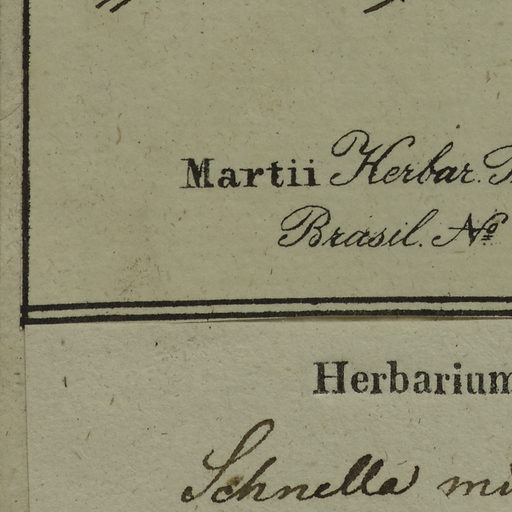 Martii Herbar.
Brasil. Nº
Herbarium
Schnella